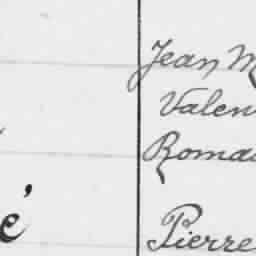 Jean M
Valen
Roma
é
Pierre